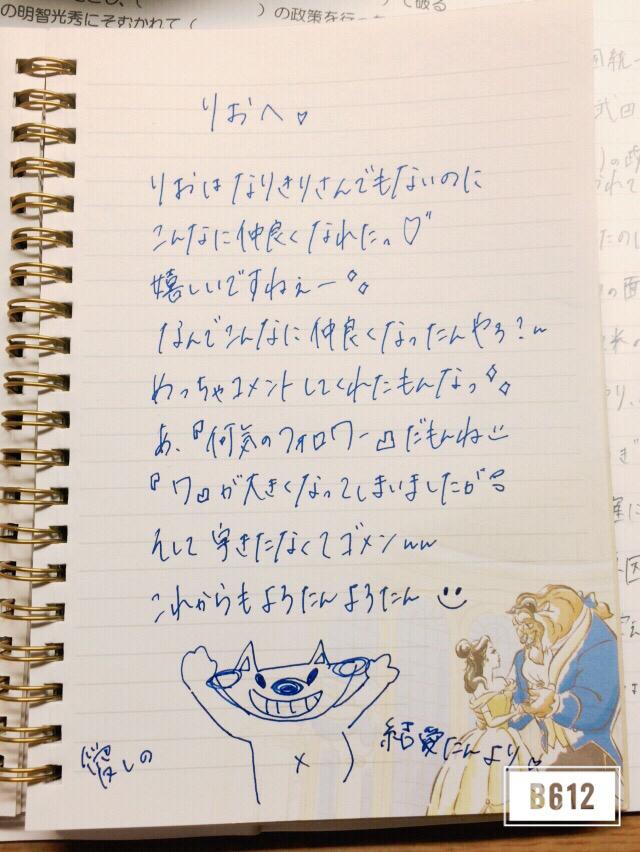 の明智光秀にそむかれて（　　　）の政策を行っ
て破る
りおへ♡
りおはなりきりさんでもないのに
こんなに仲良くなれたっ♡
嬉しいですねぇー
なんでこんなに仲良くなったんやろ？
めっちゃコメントしてくれたもんなっ
あ、『何気のフォロワー』だもんね
『ワ』が大きくなってしまいましたが
そして字きたなくてゴメンwww
これからもよろたんよろたん
愛しの
結愛たんより
B612
国統一
武田